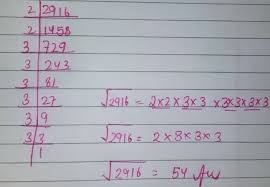 2 | 2916
2 | 1458
3 | 729
3 | 243
3 | 81
3 | 27
3 | 9
3 | 3
1
√2916 = 2×2×3×3×3×3×3×3
√2916 = 2×3×3×3
√2916 = 54 Aw